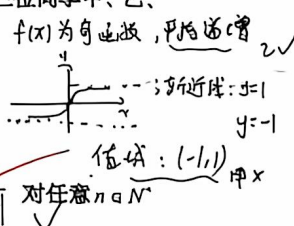 f(x)为奇函数，严格递增
2✓
y
x
渐近线：y=1
y=-1
值域：(-1,1)
甲×
对任意n∈N*